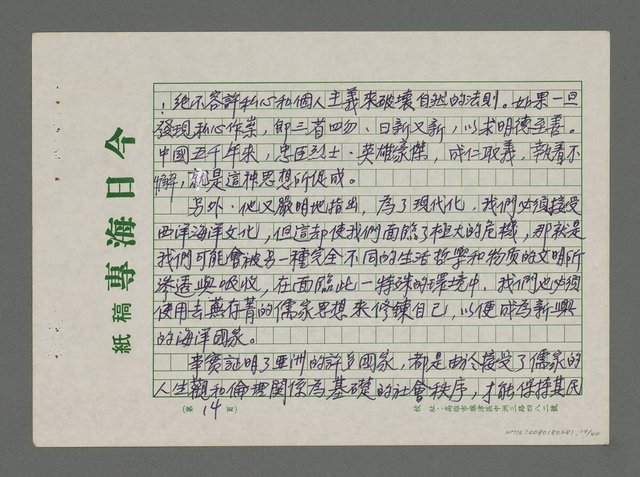 ！絕不容許私心和個人主義來破壞自然的法則。如果一旦
發現私心作祟，即三省四勿、日新又新，以求明德至善。
中國五千年來，忠臣烈士、英雄豪傑，成仁取義，執著不
懈，就是這種思想所促成。
另外，他又嚴明地指出，為了現代化，我們必須接受
西洋海洋文化，但這却使我們面臨了極大的危機，那就是
我們可能會被另一種完全不同的生活哲學和物質的文明所
滲透與吸收，在面臨此一特殊的環境中，我們也必須
使用去蕪存菁的儒家思想來修鍊自己，以便成為新興
的海洋國家。
事實証明了亞洲的許多國家，都是由於接受了儒家的
人生觀和倫理關係為基礎的社會秩序，才能保持其民
今日海專
稿紙
（第14頁）
校址：高雄市旗津區中洲三路四八二號